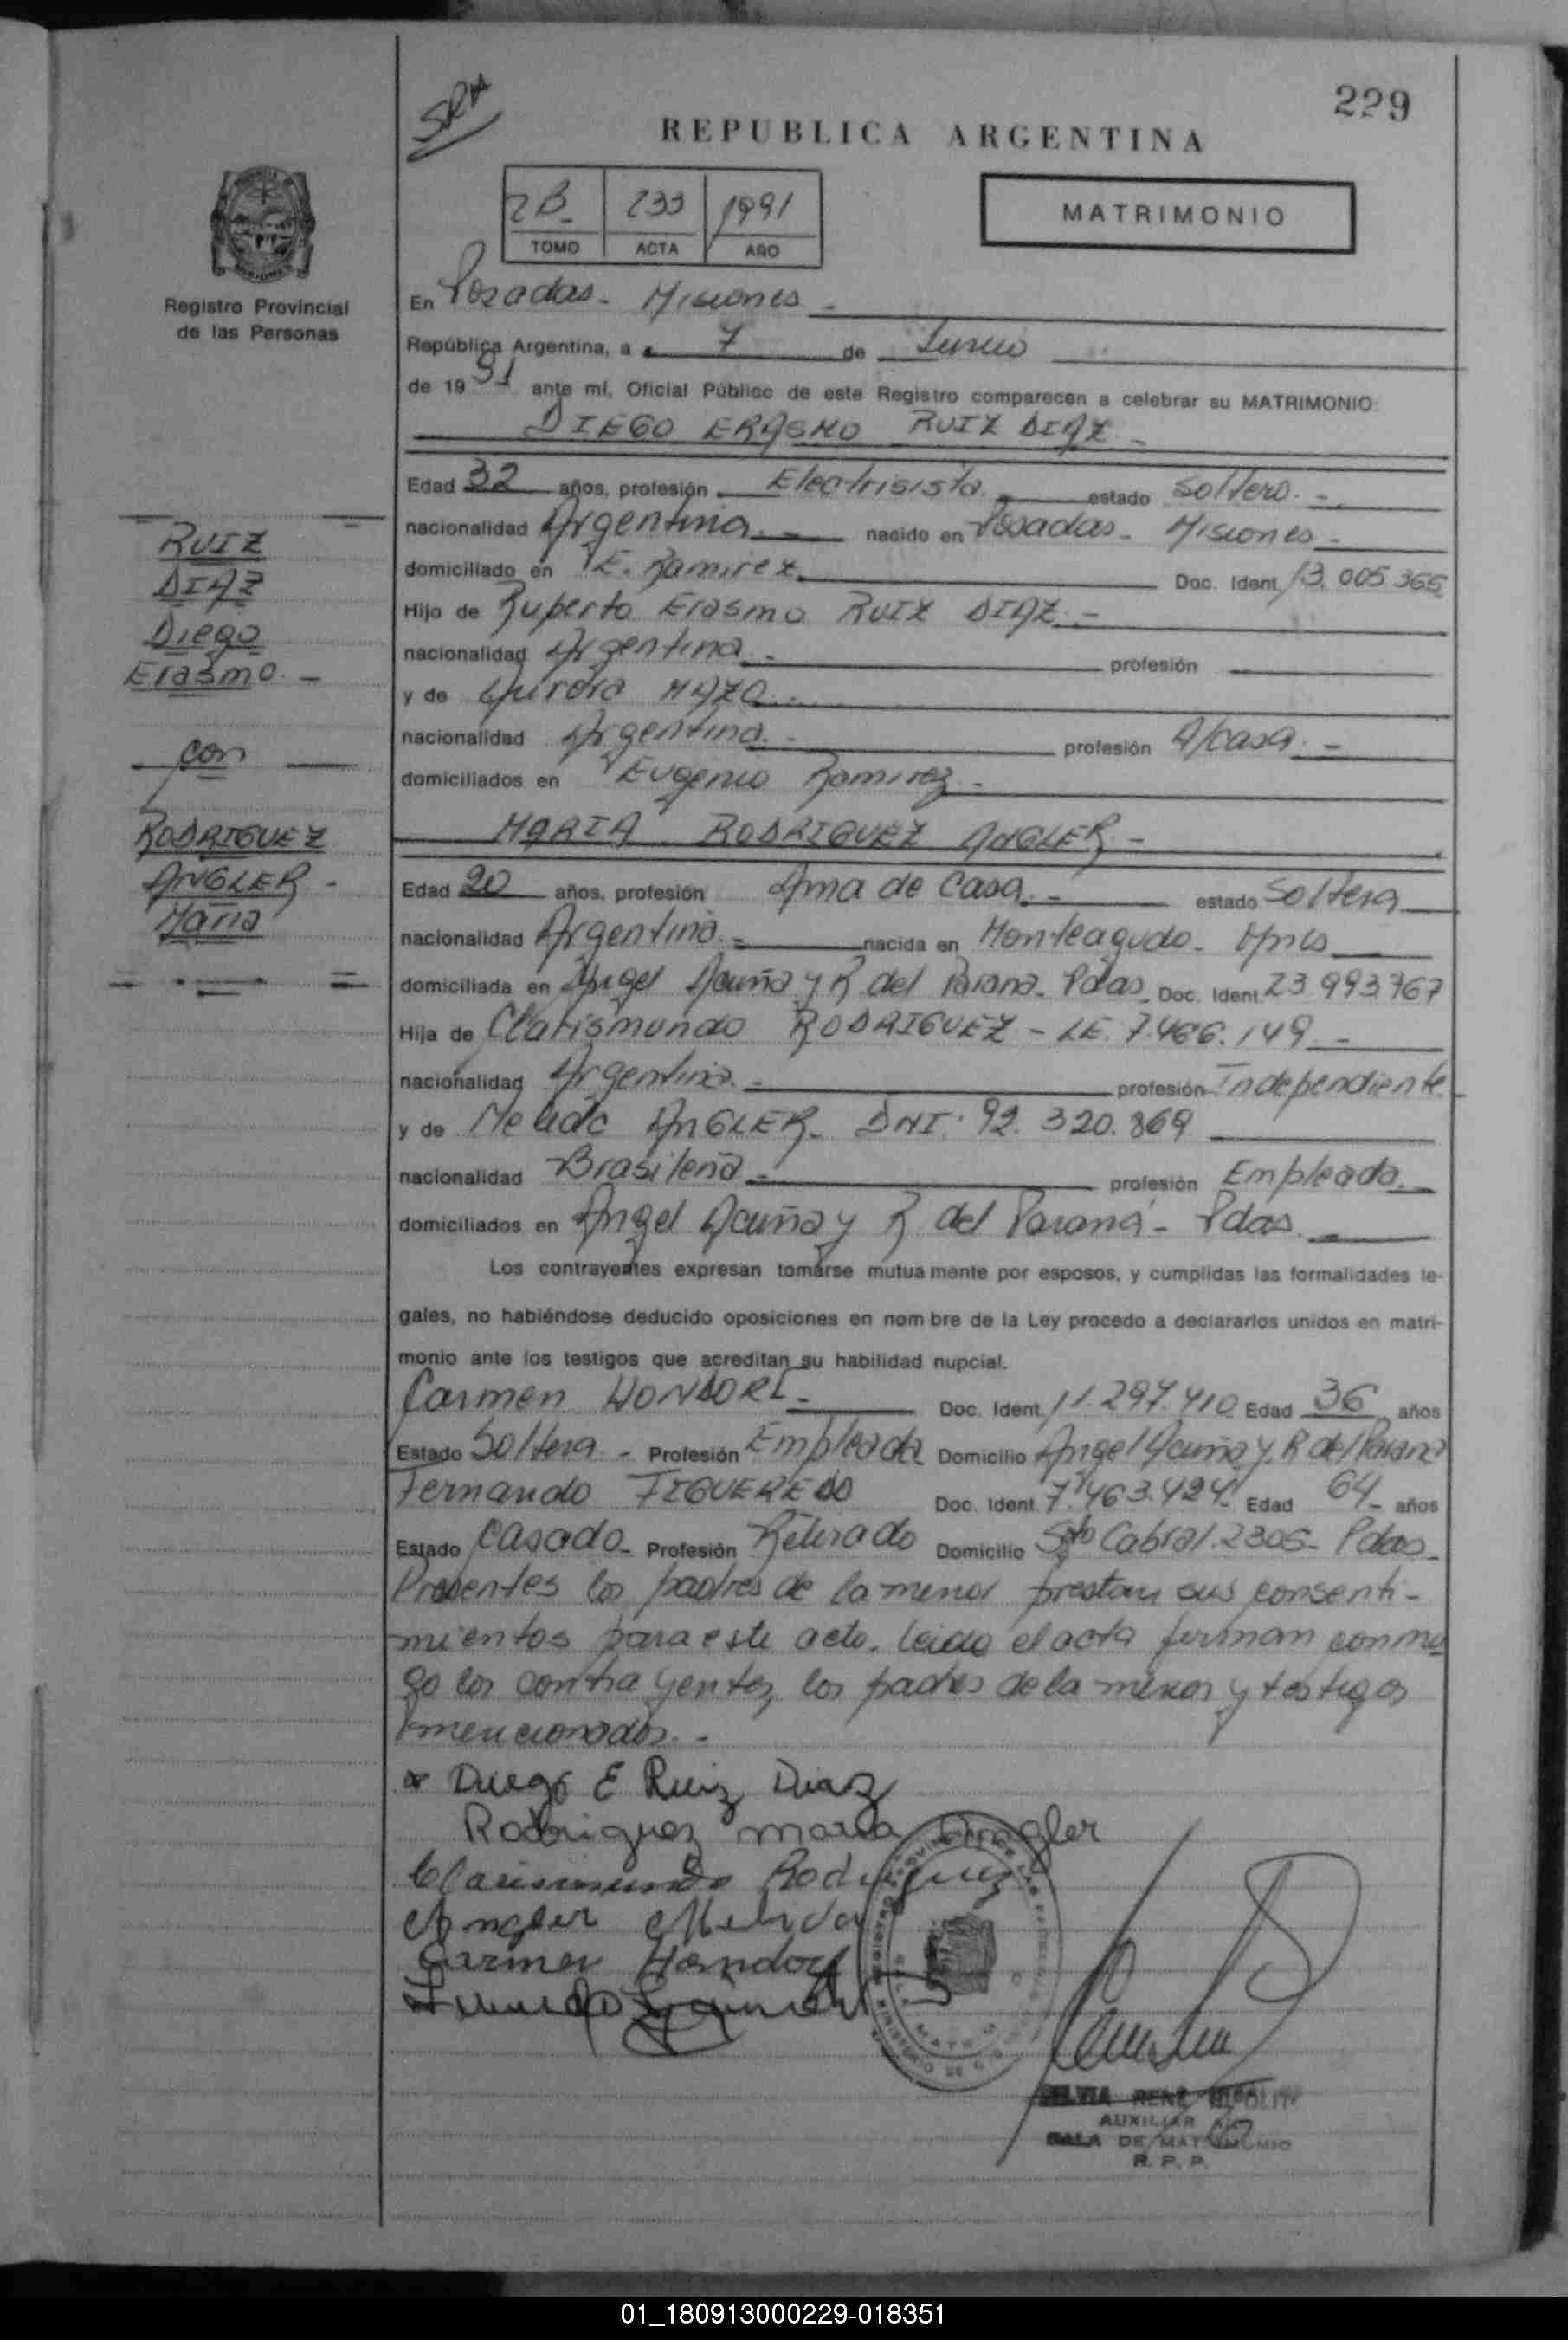 229
REPUBLICA ARGENTINA
2B- 233 1991
TOMO ACTA AÑO
MATRIMONIO
Registro Provincial
de las Personas
En Posadas - Misiones -
República Argentina, a 7 de Junio
de 1991 ante mí, Oficial Público de este Registro comparecen a celebrar su MATRIMONIO:
DIEGO ERASMO RUIZ DIAZ -
Edad 32 años, profesión Electrisista - estado Soltero. -
nacionalidad Argentina. - nacido en Posadas - Misiones -
domiciliado en E. Ramirez Doc. Ident. 13.005.365
Hijo de Ruperto Erasmo RUIZ DIAZ. -
nacionalidad Argentina - profesión
y de Aurora MAZO -
nacionalidad Argentina. - profesión A/casa. -
domiciliados en Eugenio Ramirez -
MARIA RODRIGUEZ ANGLER -
Edad 20 años, profesión Ama de Casa. - estado Soltera
nacionalidad Argentina - nacida en Monteagudo - Mnes
domiciliada en Angel Acuña y R del Parana - Pdas Doc. Ident. 23 993 767
Hija de Clarismundo RODRIGUEZ - LE. 7.466.149 -
nacionalidad Argentina - profesión Independiente
y de Melida ANGLER - DNI. 92.320.869
nacionalidad Brasileña - profesión Empleada
domiciliados en Angel Acuña y R del Paraná - Pdas.
Los contrayentes expresan tomarse mutuamente por esposos, y cumplidas las formalidades le-
gales, no habiéndose deducido oposiciones en nombre de la Ley procedo a declararlos unidos en matri-
monio ante los testigos que acreditan su habilidad nupcial.
Carmen Doc. Ident. 11.297.410 Edad 36 años
Estado Soltera - Profesión Empleada Domicilio Angel Acuña y R del Parana
Fernando FIGUEREDO Doc. Ident. 7.463.424 Edad 64 - años
Estado Casado - Profesión Retirado Domicilio Sgto Cabral 2305 - Pdas -
Presentes los padres de la menor prestan sus consenti-
mientos para este acto. leida el acta firman conmi
go los contrayentes, los padres de la menor y testigos
mencionados. -
Diego E Ruiz Diaz
Rodriguez maria Angler
Clarismundo Rodriguez
Angler Melida
Carmen
RUIZ
DIAZ
Diego
Erasmo. -
con
RODRIGUEZ
ANGLER -
Maria
AUXILIAR
SALA DE MATRIMONIO
R. P. P.
01_180913000229-018351